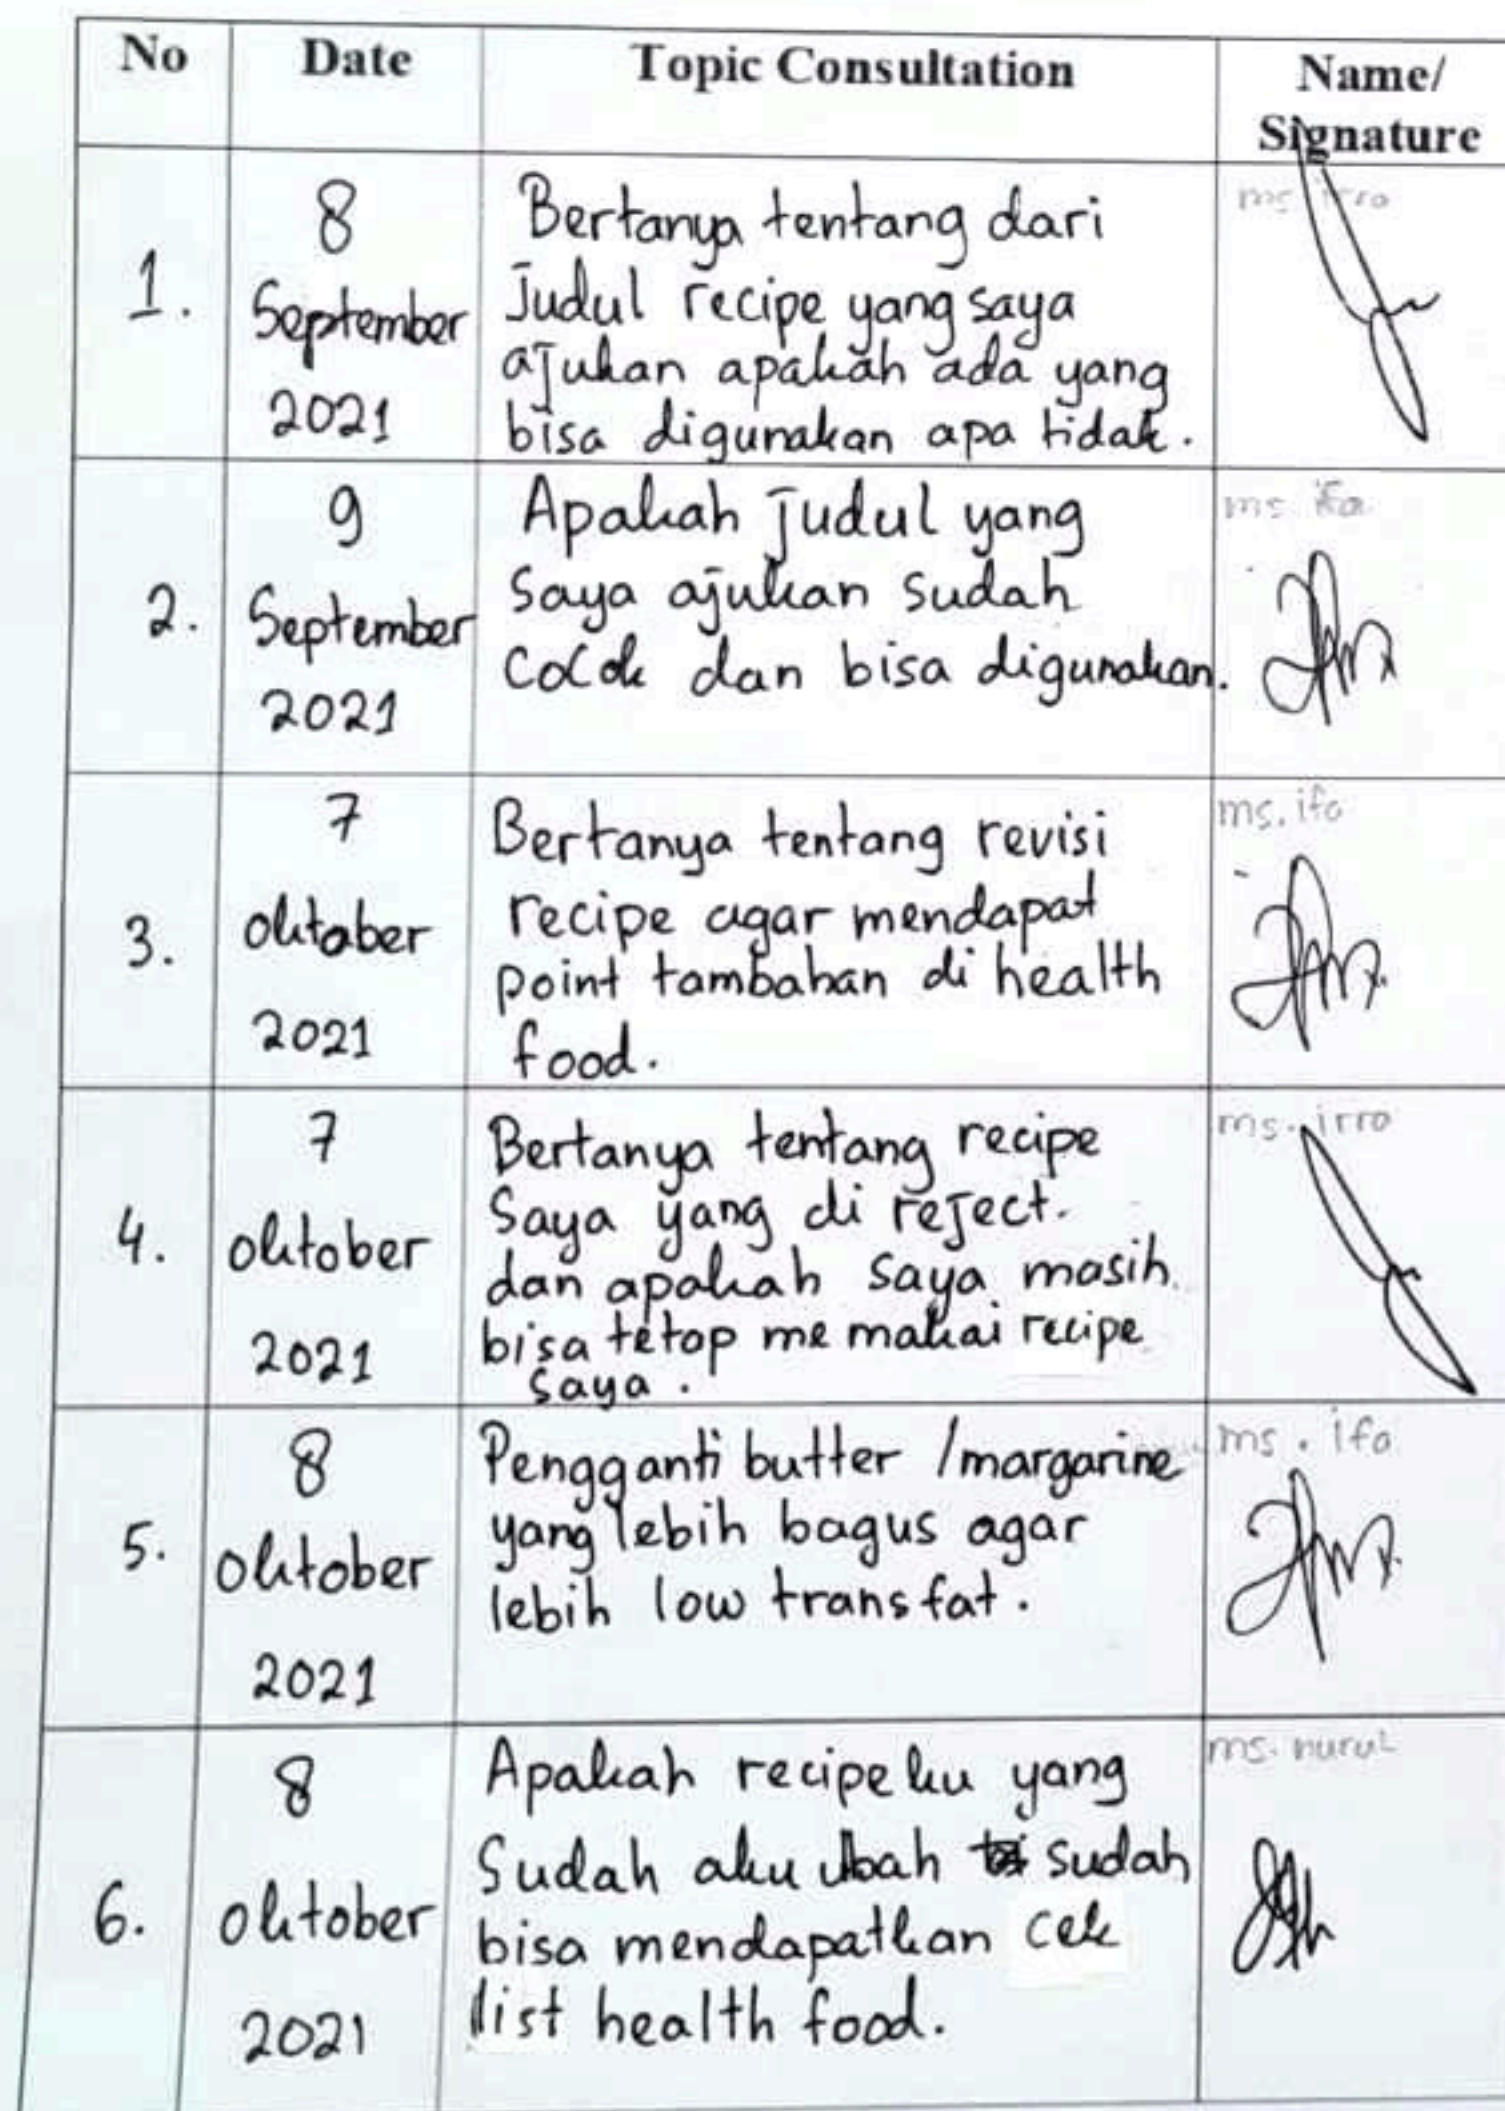 No Date Topic Consultation Name/
Signature
1. 8 September 2021 ms irro
Bertanya tentang dari
Judul recipe yang saya
ajukan apakah ada yang
bisa digunakan apa tidak.
2. 9 September 2021 ms ifa
Apakah judul yang
Saya ajukan sudah
cocok dan bisa digunakan.
3. 7 oktober 2021 ms. ifa
Bertanya tentang revisi
recipe agar mendapat
point tambahan di health
food.
4. 7 oktober 2021 ms. irro
Bertanya tentang recipe
Saya yang di reject.
dan apakah saya masih
bisa tetap me makai recipe
saya.
5. 8 oktober 2021 ms. ifa
Pengganti butter /margarine
yang lebih bagus agar
lebih low trans fat.
6. 8 oktober 2021 ms. nurul
Apakah recipe ku yang
Sudah aku ubah sudah
bisa mendapatkan cek
list health food.